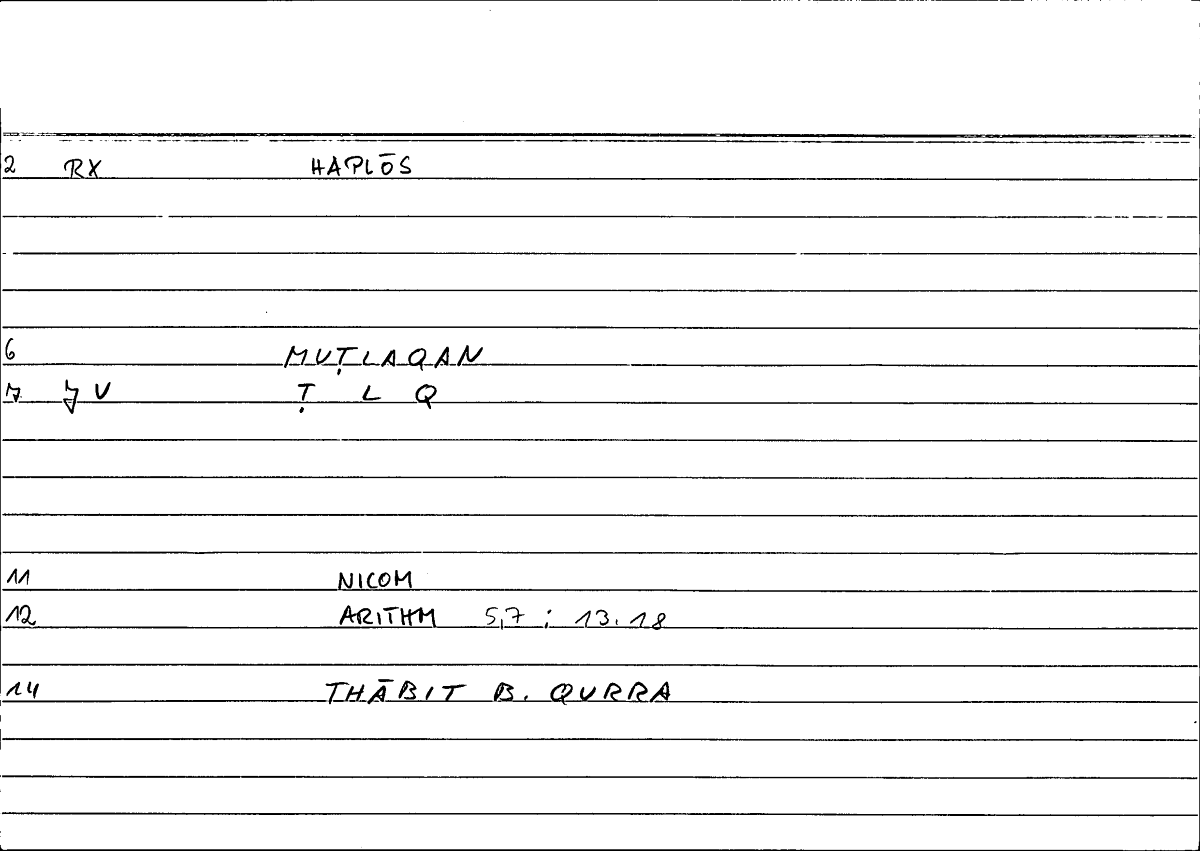 2 RX HAPLŌS
6 MUṬLAQAN
7 V Ṭ L Q
11 NICOM
12 ARITHM 5,7 ; 13.18
14 THĀBIT B. QURRA